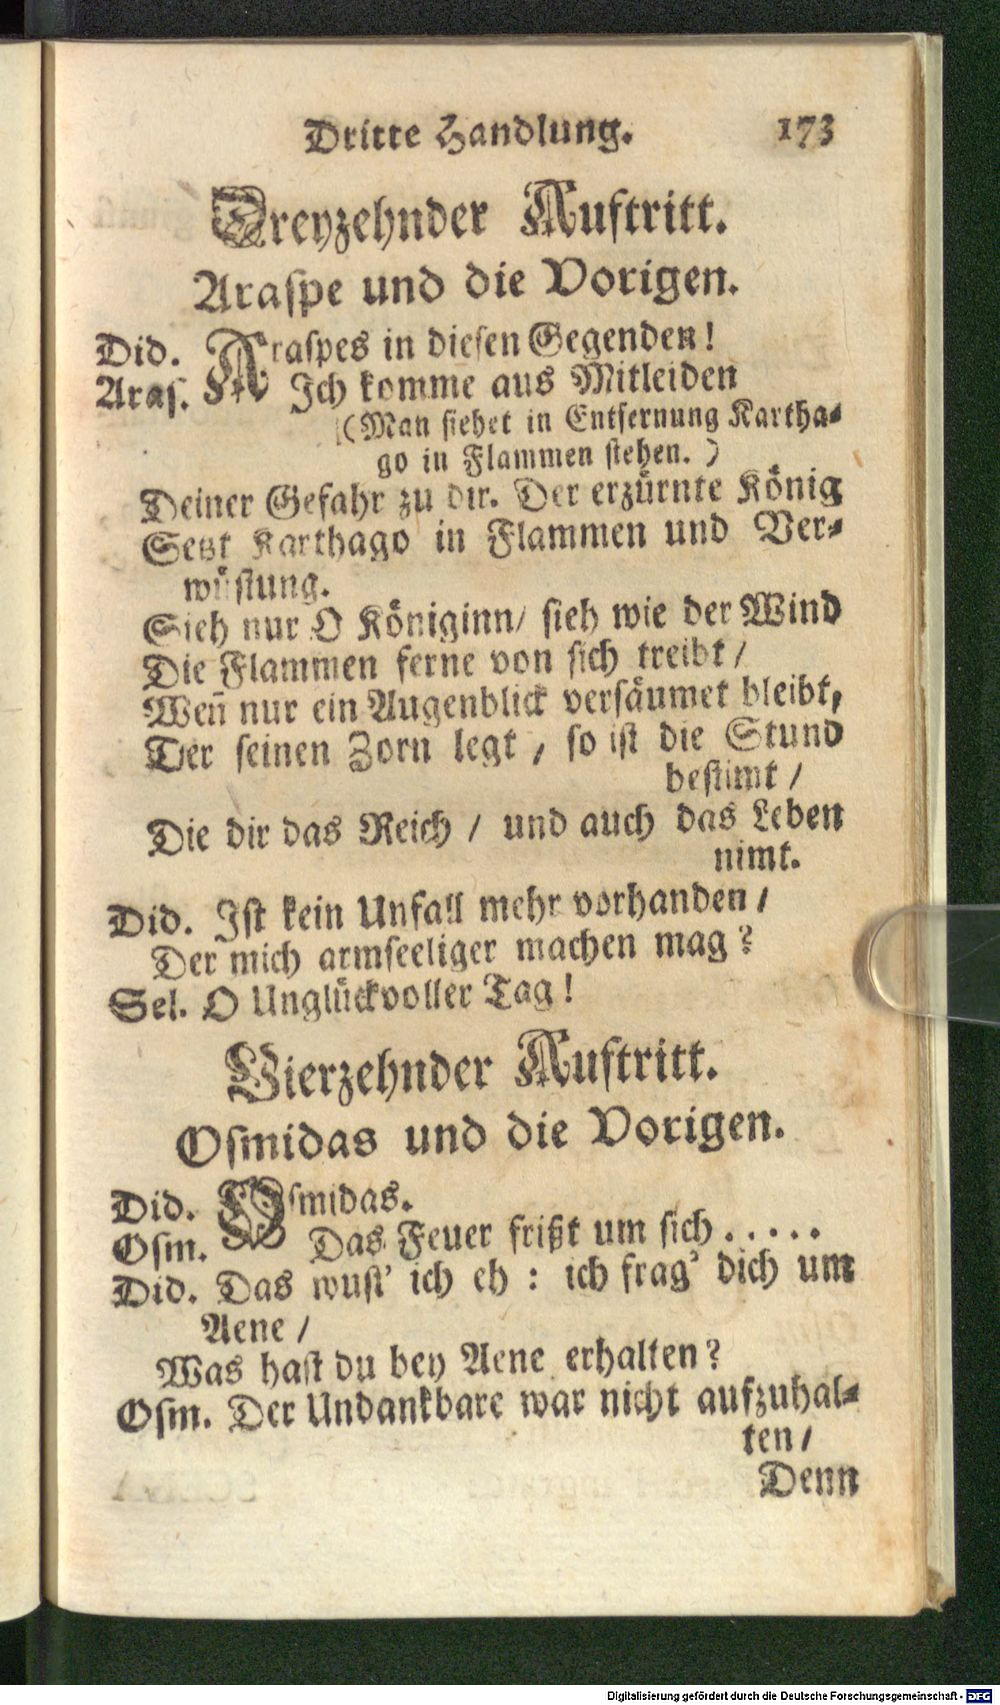 Dritte Handlung. 173
Dreyzehnder Auftritt.
Araspe und die Vorigen.
Did. Araspes in diesen Gegenden!
Aras. Ich komme aus Mitleiden
(Man siehet in Entfernung Kartha-
go in Flammen stehen.)
Deiner Gefahr zu dir. Der erzürnte König
Setzt Karthago in Flammen und Ver-
wüstung.
Sieh nur O Königinn/ sieh wie der Wind
Die Flammen ferne von sich treibt /
Weñ nur ein Augenblick versäumet bleibt,
Der seinen Zorn legt / so ist die Stund
bestimt /
Die dir das Reich / und auch das Leben
nimt.
Did. Ist kein Unfall mehr vorhanden /
Der mich armseeliger machen mag?
Sel. O Unglückvoller Tag!
Vierzehnder Auftritt.
Osmidas und die Vorigen.
Did. Osmidas.
Osm. Das Feuer frißt um sich . . . . .
Did. Das wust' ich eh : ich frag' dich um
Aene /
Was hast du bey Aene erhalten?
Osm. Der Undankbare war nicht aufzuhal-
ten /
Denn
Digitalisierung gefördert durch die Deutsche Forschungsgemeinschaft - DFG